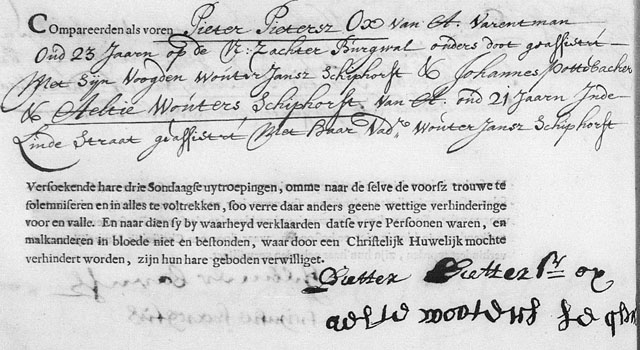 Compareerden als voren Pieter Pietersz Ox van A. Varentman
Oud 23 Jaarn op de N: Zachter Burgwal ouders doot geassistt
Met Sijn Voogden Wouter Jansz Schiphorst & Johannes Pottsbacher
& Aeltie Wouters Schiphorst van A. oud 21 Jaarn Inde
Linde Straat geassistrt Met haar Vadr Wouter Jansz Schiphorst
Versoekende hare drie Sondaagse uytroepingen, omme naar de selve de voorsz trouwe te
solemniseren en in alles te voltrekken, soo verre daar anders geene wettige verhinderinge
voor en valle. En naar dien sy by waarheyd verklaarden datse vrye Persoonen waren, en
malkanderen in bloede niet en bestonden, waar door een Christelijk Huwelijk mochte
verhindert worden, zijn hun hare geboden verwilliget.
Pietter Pietter ox
aeltie wooters